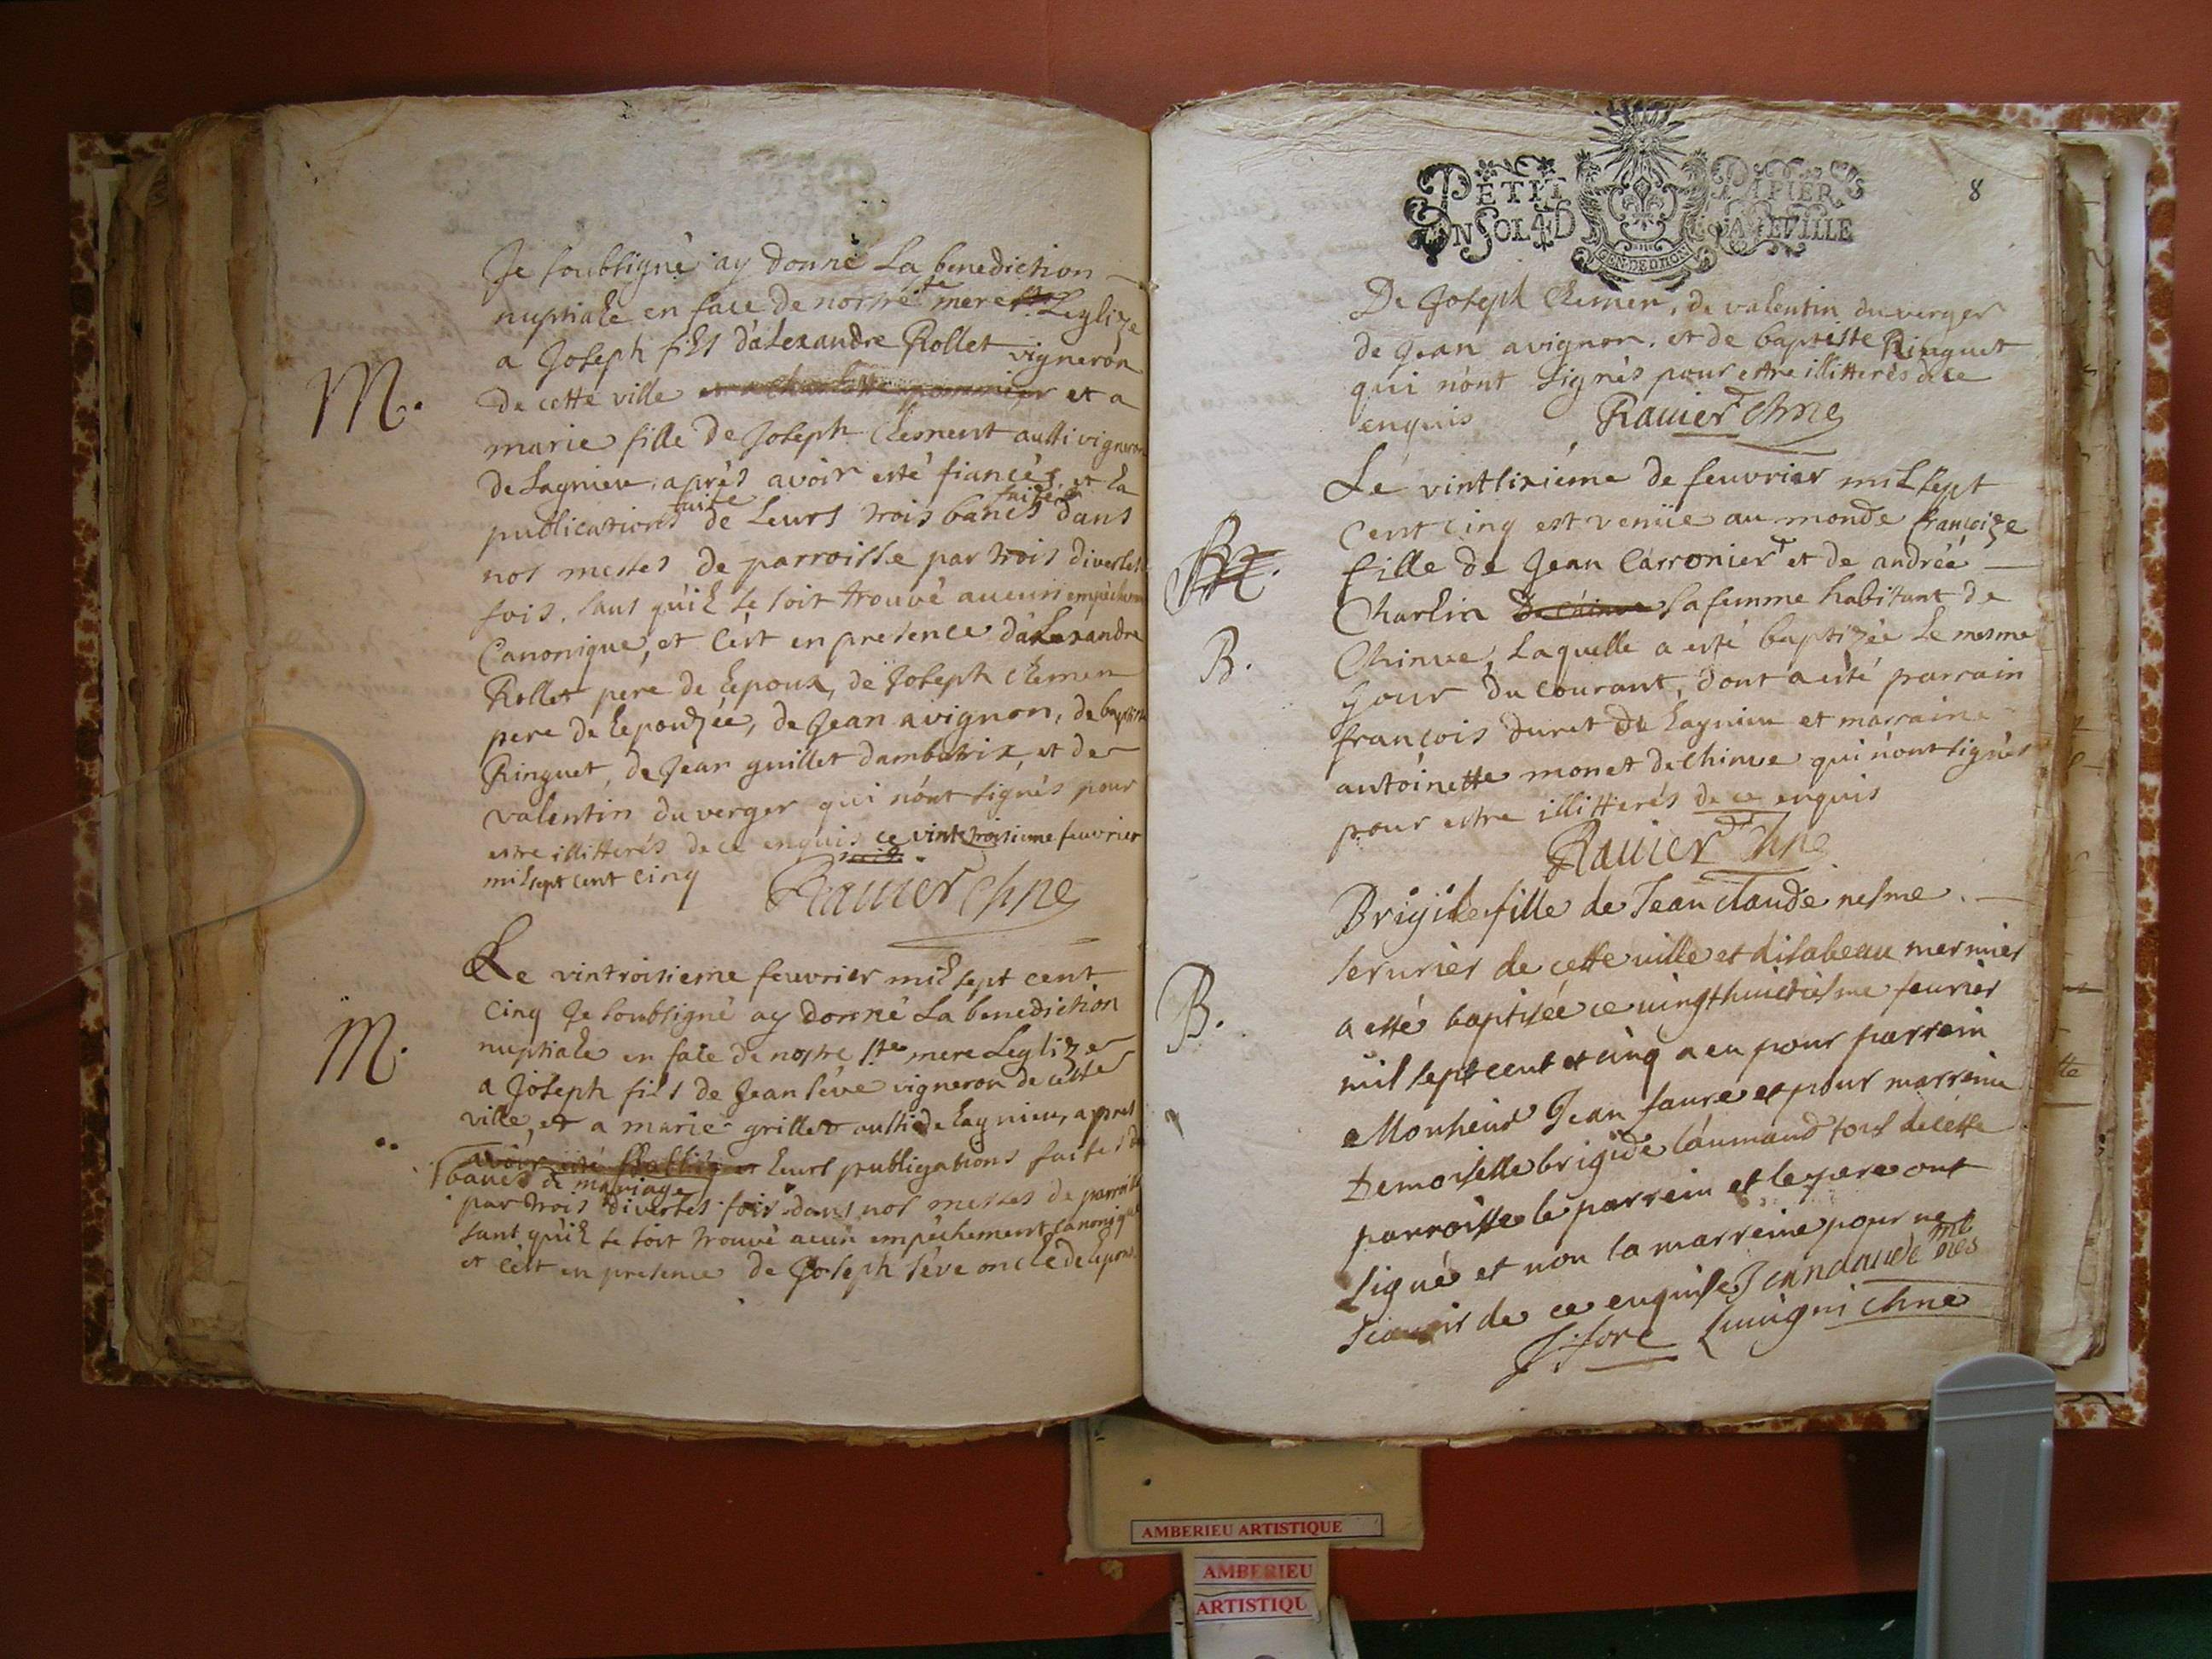 Je soubsigné ay donné La benediction
nuptiale en face de nostre ste mere Leglize
a Joseph fils d'alexandre Rollet vigneron
De cette ville et a
marie fille De Joseph Clement aussi vigneron
de Lagnieu, aprés avoir esté fiancés, et la
publications faite de Leurs trois bancs faites dans
nos messes De parroisse par trois diverses
fois, sans qu'il se soit trouvé aucun empechem
Canonique, et c'est en presence d'alexandre
Rollet pere de Lepoux, de Joseph Clemen
pere de Lepouzée, de Jean avignon, de baptiste
Ringuet, de Jean guillet dambutrix, et de
valentin du verger qui n'ont signés pour
estre illitterés de ce enquis ce vintetroisieme feuvrier
mil sept cent cinq Rauier chne
M.
Le vintroisieme feuvrier mil sept cent
cinq Je soubsigné ay donné La benediction
nuptiale en face de nostre ste mere Leglize
a Joseph fils de Jean séve vigneron de cette
ville, et a marie grillet aussi de Lagnieu, aprés
avoir esté leurs publigations faites de
bancs de mariage
par trois diverses fois dans nos messes de parroisse
sans qu'il se soit trouvé aucun empéchement canonique
et c'est en presence de Joseph séve oncle de Lepoux
M.
PETIT PAPIER
UN SOL 4 D LA FEUILLE
GEN. DE DIION
8
De Joseph Clemen, de valentin du verger
de Jean avignon, et de baptiste Ringuet
qui n'ont signés pour estre illitterés de ce
enquis Rauier Chne
Le vintsixiéme de feuvrier mil sept
cent cinq est venüe au monde françoize
fille de Jean Carronier et de andréé
Charlin sa femme habitant de
Chinve, Laquelle a esté baptizée Le mesme
Jour du courant, dont a esté parrain
françois duret de Lagnieu et marraine
antoinette monet de Chinve qui n'ont signés
pour estre illitterés de ce enquis
Rauier Chne
B.
Brigide fille de Jean claude nesme
serurier de cette uille et disabeau mermier
a esté baptisée ce uingthuictiesme feurier
mil sept cent et cinq a eu pour parrein
Monsieur Jean faure et pour marreine
Demoiselle brigide laumand tous de cette
parroisse le parrein et le pere ont
signé et non la marreine pour ne
scauoir de ce enquise Jean claude nesme
J. fore Chne
B.
AMBERIEU ARTISTIQUE
AMBERIEU
ARTISTIQU